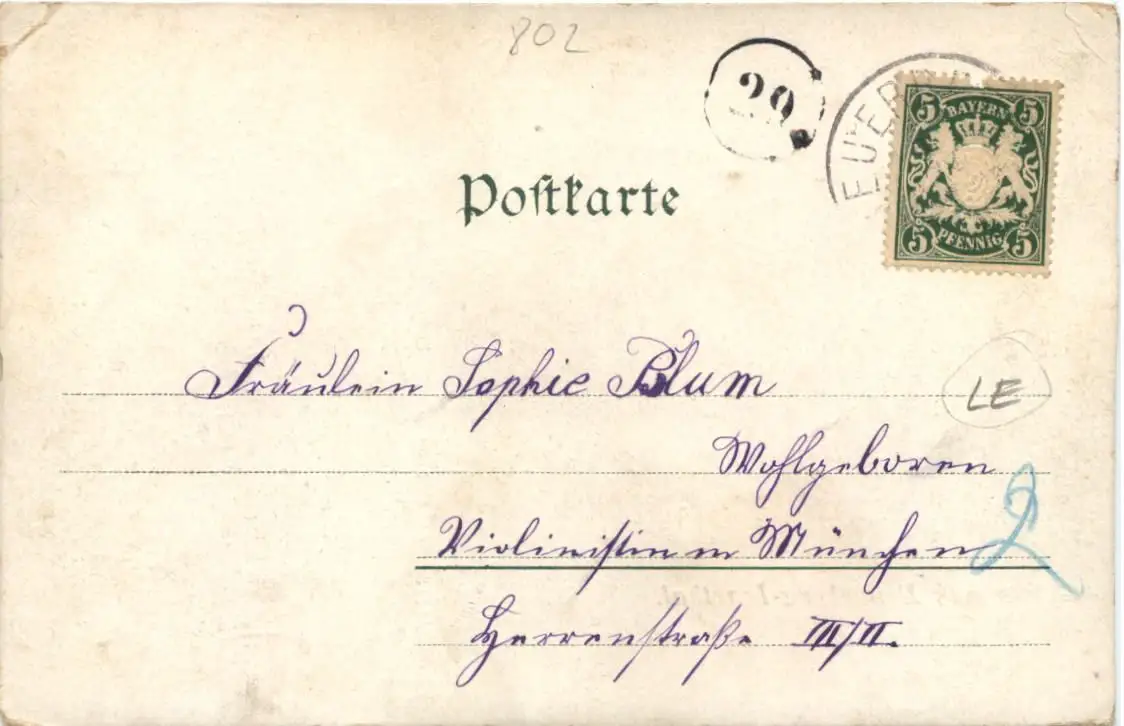 802
29.
EUER
5 BAYERN 5
5 PFENNIG 5
Postkarte
Fräulein Sophie Blum
LE
Wohlgeboren
2
Violinistin in München
Herrenstraße III/II.